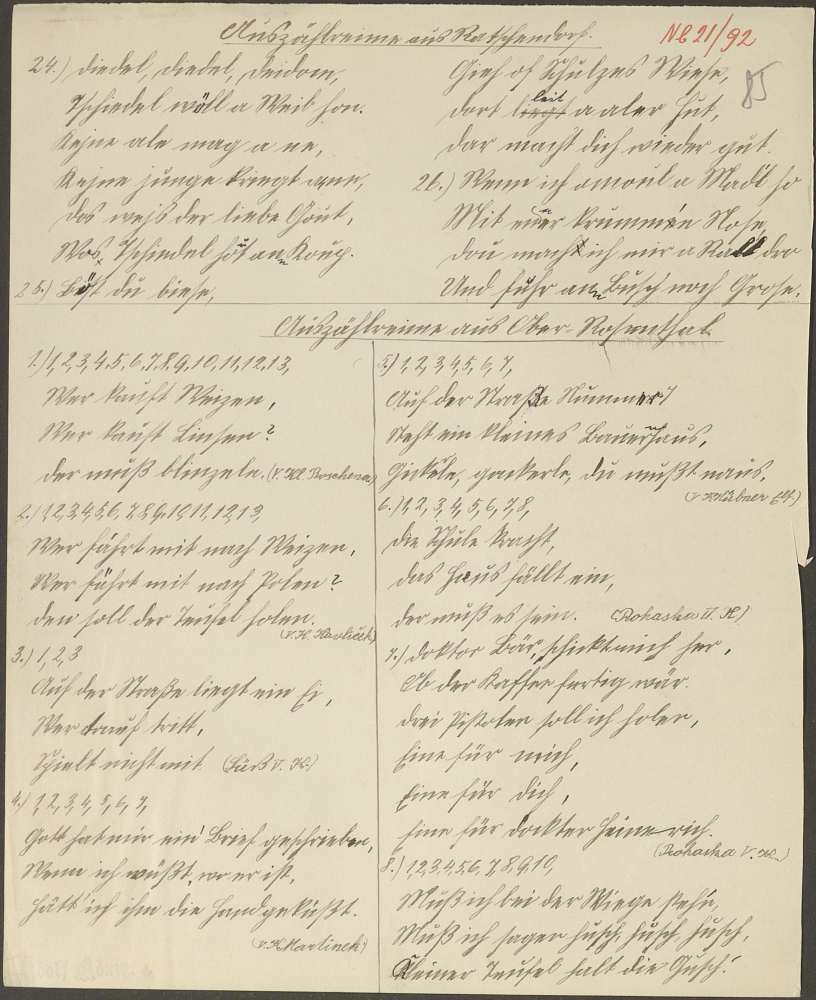 Auszählreime aus Ratschendorf.
NB 21/92
85
24.) Diedel, diedel, deidom,
Tschiedel wöll a Weib hon.
Kejne ale mag a ne,
Kejne junge kriegt ann,
Das wejs der liebe Gout,
Wos Tschiedel hot an Koup.
25.) Böst du biese,
Gieh of Schulzes Wiese,
dort leit a aler Hut,
dar macht dich wieder gut.
26.) Wenn ich amoul a Madl ho
Mit einer krummen Nose,
dou mach ich mir a Radl dro
Und fuhr an Busch noch Grose.
Auszählreime aus Ober-Rosenthal
1.) 1,2,3,4,5,6,7,8,9,10,11,12,13,
Wer kauft Weizen,
Wer kauft Linsen?
der muß blinzeln. (V. Kl. Proschma)
2.) 1,2,3,4,5,6,7,8,9,10,11,12,13,
Wer fährt mit nach Weizen,
Wer fährt mit nach Polen?
den soll der Teufel holen.
(V. Kl. Havlicek)
3.) 1,2,3
Auf der Straße liegt ein Ei,
Wer drauf tritt,
Spielt nicht mit. (Süß V. Kl.)
4.) 1,2,3,4,5,6,7,
Gott hat mir ein' Brief geschrieben,
Wenn ich wüßt, wo er ist,
Hätt' ich ihm die Hand geküßt.
(V. Kl. Martinek)
5.) 1,2,3,4,5,6,7,
Auf der Straße Nummer 7
Steht ein kleines Bauernhaus,
Gickerle, gackerle, du mußt naus.
(V. Kl. Hübner)
6.) 1,2,3,4,5,6,7,8,
die Schule kracht,
das Haus fällt ein,
der muß es sein. (Prokascha V. Kl.)
7.) Doktor Bär, schickt mich her,
Ob der Kaffee fertig wär.
drei Pistolen soll ich holen,
Eine für mich,
Eine für dich,
Eine für Dockter Heinerich.
(Prokascha V. Kl.)
8.) 1,2,3,4,5,6,7,8,9,10,
Muß ich bei der Wiege stehn,
Muß ich sagen husch, husch, husch,
Kleiner Teufel halt die Gusch!